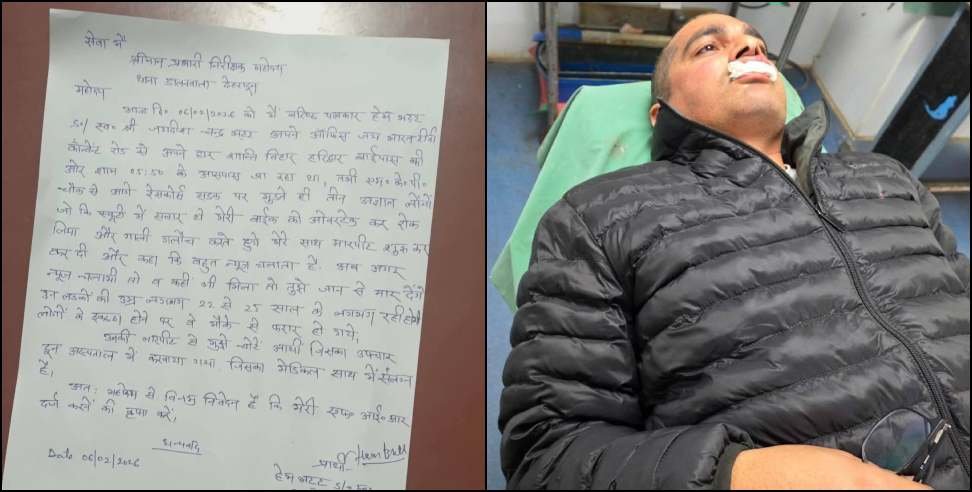 सेवा में
श्रीमान प्रभारी निरीक्षक महोदय
थाना डालनवाला देहरादून
महोदय
आज दि० 06/02/2026 को मैं वरिष्ठ पत्रकार हेम भट्ट
S/o स्व० श्री जगदीश चन्द्र भट्ट अपने ऑफिस जय भारत टीवी
कॉन्वेंट रोड से अपने घर शान्ति विहार हरिद्वार बाईपास की
ओर शाम 05:50 के आसपास जा रहा था, तभी एस० के० पी०
चौक से आगे रेसकोर्स सड़क पर मुड़ते ही तीन अज्ञात लोगों
जो कि स्कूटी में सवार थे मेरी बाईक को ओवरटेक कर रोक
लिया और गाली गलौच करते हुये मेरे साथ मारपीट शुरू कर
कर दी और कहा कि बहुत न्यूज चलाता है, अब अगर
न्यूज चलायी तो व कही भी मिला तो तुझे जान से मार देंगे
उन लडकों की उम्र लगभग 22 से 25 साल के लगभग रही होगी
लोगों के इकट्ठा होने पर वे मौके से फरार हो गये,
उनकी मारपीट से मुझे चोटें आयी जिसका उपचार
दून अस्पताल में करवाया गया, जिसका मेडिकल साथ में संलग्न
है,
अतः महोदय से विनम्र निवेदन है कि मेरी एफ० आई० आर
दर्ज करने की कृपा करें,
धन्यवाद
Date 06/02/2026
प्रार्थी Hem Bhatt
हेम भट्ट S/o